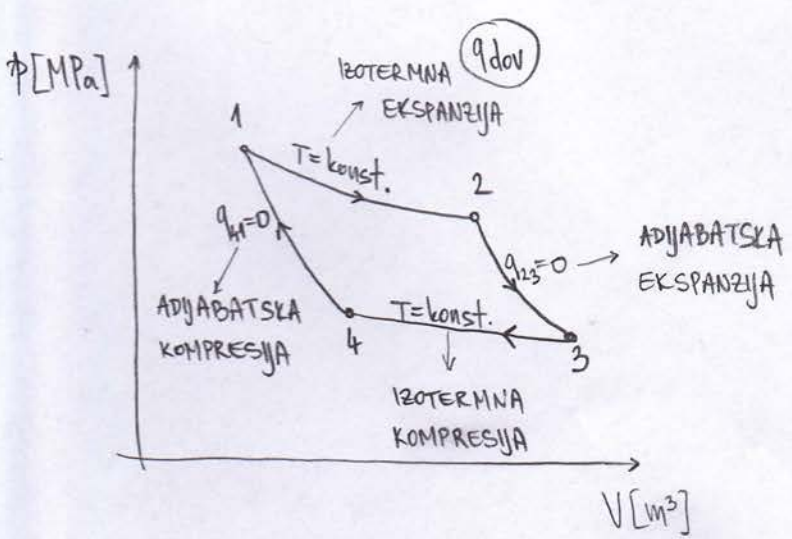 p[MPa]
IZOTERMNA
EKSPANZIJA
qdov
1
T=konst.
2
q41=0
q23=0
ADIJABATSKA
EKSPANZIJA
ADIJABATSKA
KOMPRESIJA
4
T=konst.
3
IZOTERMNA
KOMPRESIJA
V[m³]